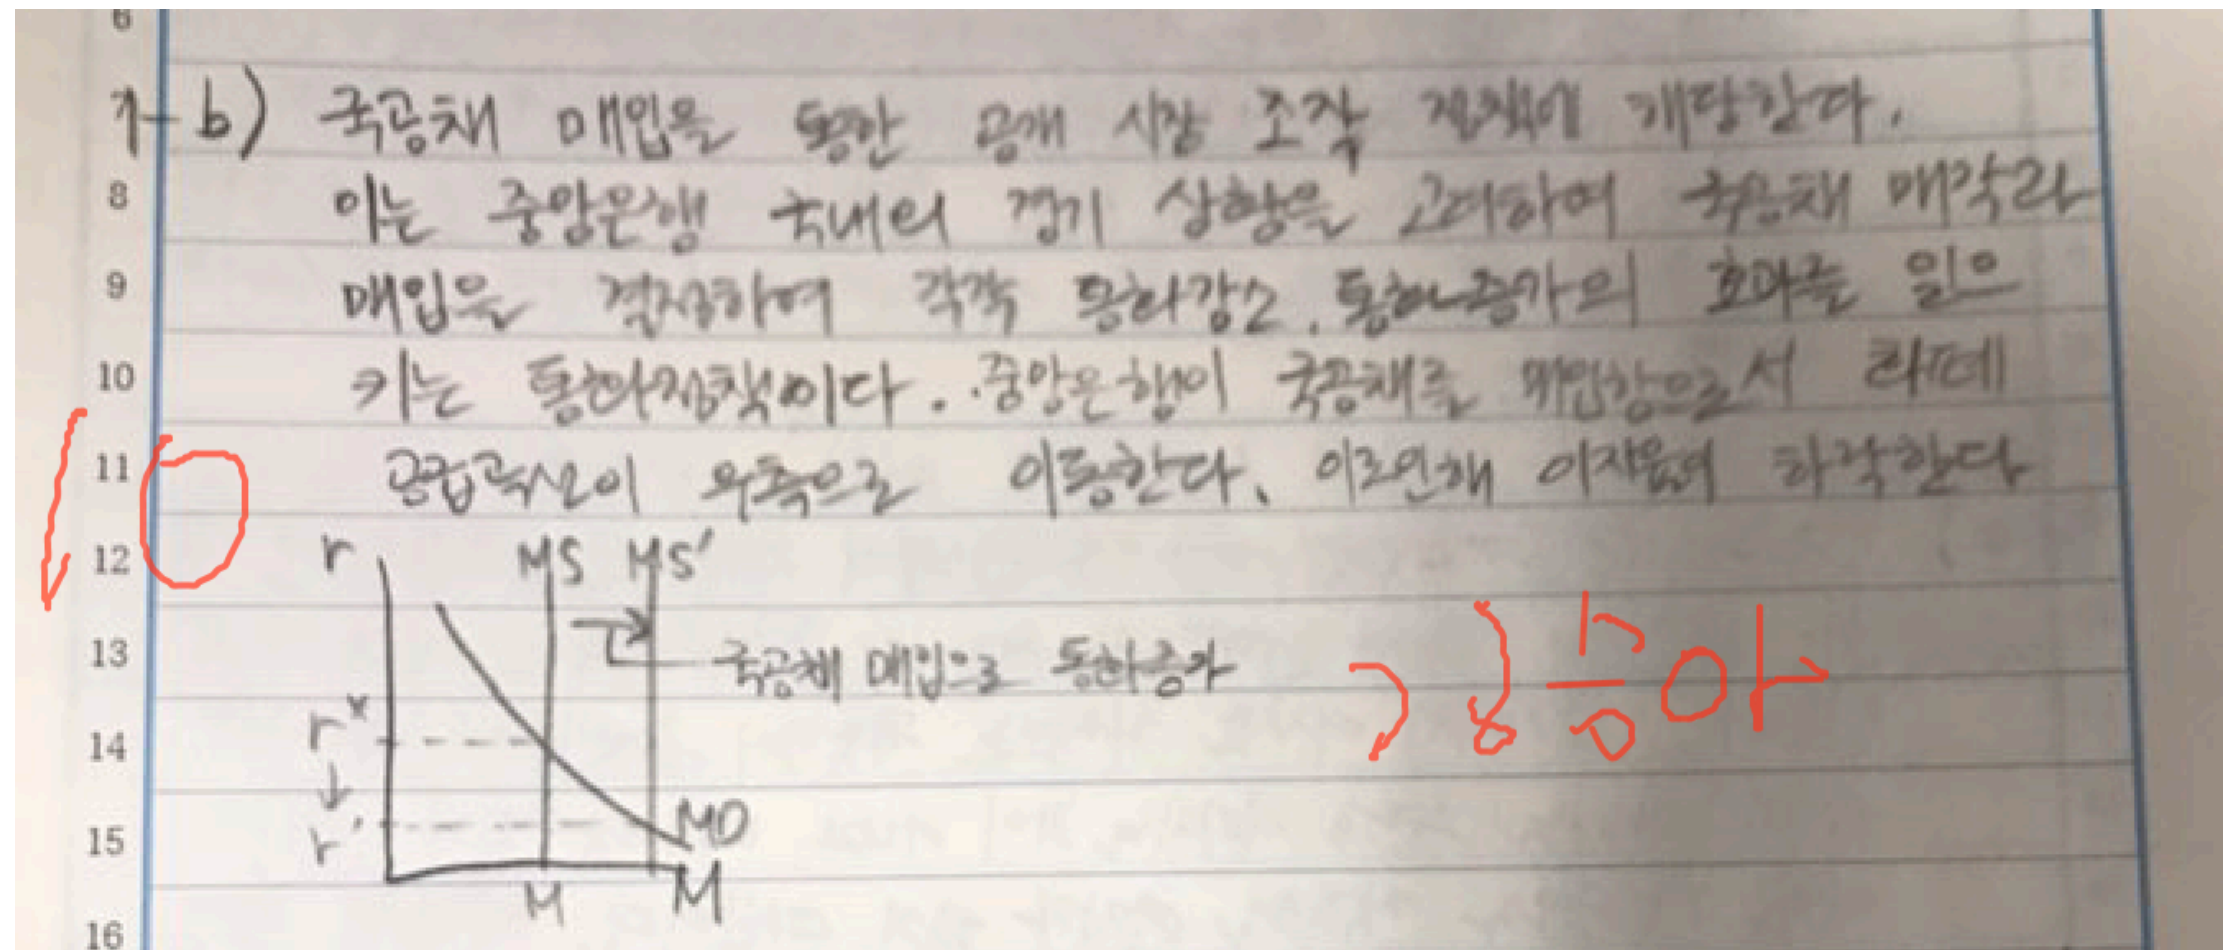 6
7
1-b) 국공채 매입을 통한 공개 시장 조작 정책에 해당한다.
8
이는 중앙은행 국내의 경기 상황을 고려하여 국공채 매각과
9
매입을 결정하여 각각 통화감소, 통화증가의 효과를 일으
10
키는 통화정책이다. 중앙은행이 국공채를 매입함으로서 화폐
11
공급곡선이 우측으로 이동한다. 이로인해 이자율이 하락한다
12
r MS MS'
13
국공채 매입으로 통화증가
r*
14
↓
r'
15
MD
M M
16